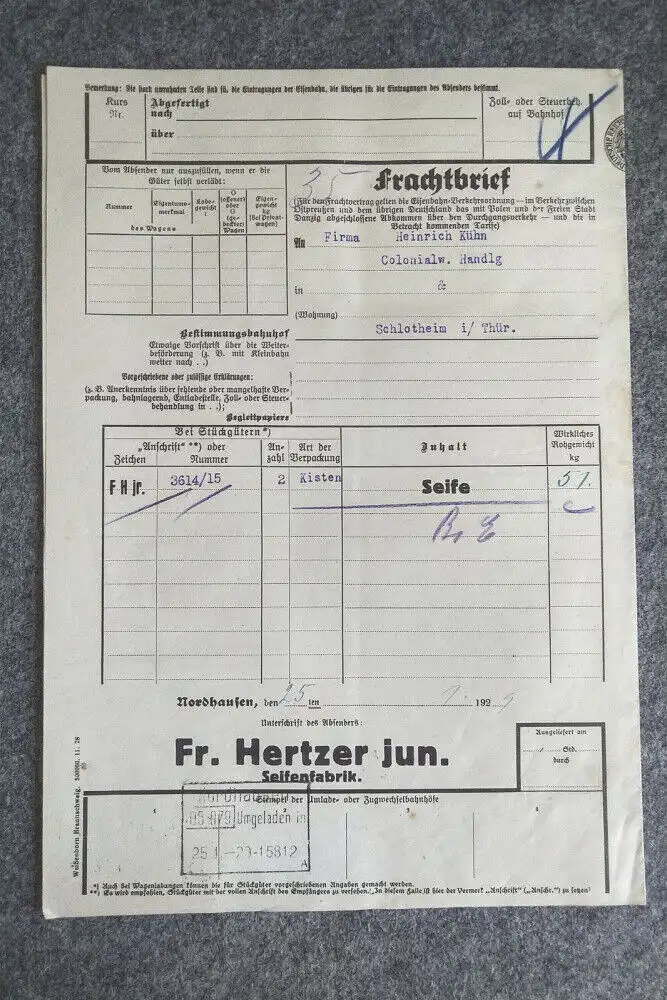 Bemerkung: Die stark umrahmten Teile sind für die Eintragungen der Eisenbahn, die übrigen für die Eintragungen des Absenders bestimmt.
Kurs
Nr.
Abgefertigt
nach
über
Zoll- oder Steuerbeh.
auf Bahnhof
Vom Absender nur auszufüllen, wenn er die
Güter selbst verlädt:
Nummer
Eigentums-
merkmal
Lade-
gewicht
t
O
(offener)
oder
G
(ge-
deckter)
Wagen
Eigen-
gewicht
kg
(Bei Privat-
wagen)
des Wagens
35
Frachtbrief
(Für den Frachtvertrag gelten die Eisenbahn-Verkehrsordnung — im Verkehr zwischen
Ostpreußen und dem übrigen Deutschland das mit Polen und der Freien Stadt
Danzig abgeschlossene Abkommen über den Durchgangsverkehr — und die in
Betracht kommenden Tarife)
An Firma Heinrich Kühn
Colonialw. Handlg
in
(Wohnung)
Schlotheim i/ Thür.
Bestimmungsbahnhof
Etwaige Vorschrift über die Weiter-
beförderung (z. B. mit Kleinbahn
weiter nach . .)
Vorgeschriebene oder zulässige Erklärungen:
(z. B. Anerkenntnis über fehlende oder mangelhafte Ver-
packung, bahnlagernd, Entladestelle, Zoll- oder Steuer-
behandlung in . .);
Begleitpapiere
Bei Stückgütern*)
„Anschrift" **) oder
Zeichen
Nummer
An-
zahl
Art der
Verpackung
Inhalt
Wirkliches
Rohgewicht
kg
F H jr. 3614/15 2 Kisten Seife 51.
Nordhausen, den 25 ten 1. 1929
Unterschrift des Absenders:
Fr. Hertzer jun.
Seifenfabrik.
Ausgeliefert am
Std.
durch
Stempel der Umlade- oder Zugwechselbahnhöfe
1
2
3
4
Umgeladen in
A
*) Auch bei Wagenladungen können die für Stückgüter vorgeschriebenen Angaben gemacht werden.
**) Es wird empfohlen, Stückgüter mit der vollen Anschrift des Empfängers zu versehen. In diesem Falle ist hier der Vermerk „Anschrift" („Anschr.") zu setzen!
Weißenborn Braunschweig. 500000. 11. 28